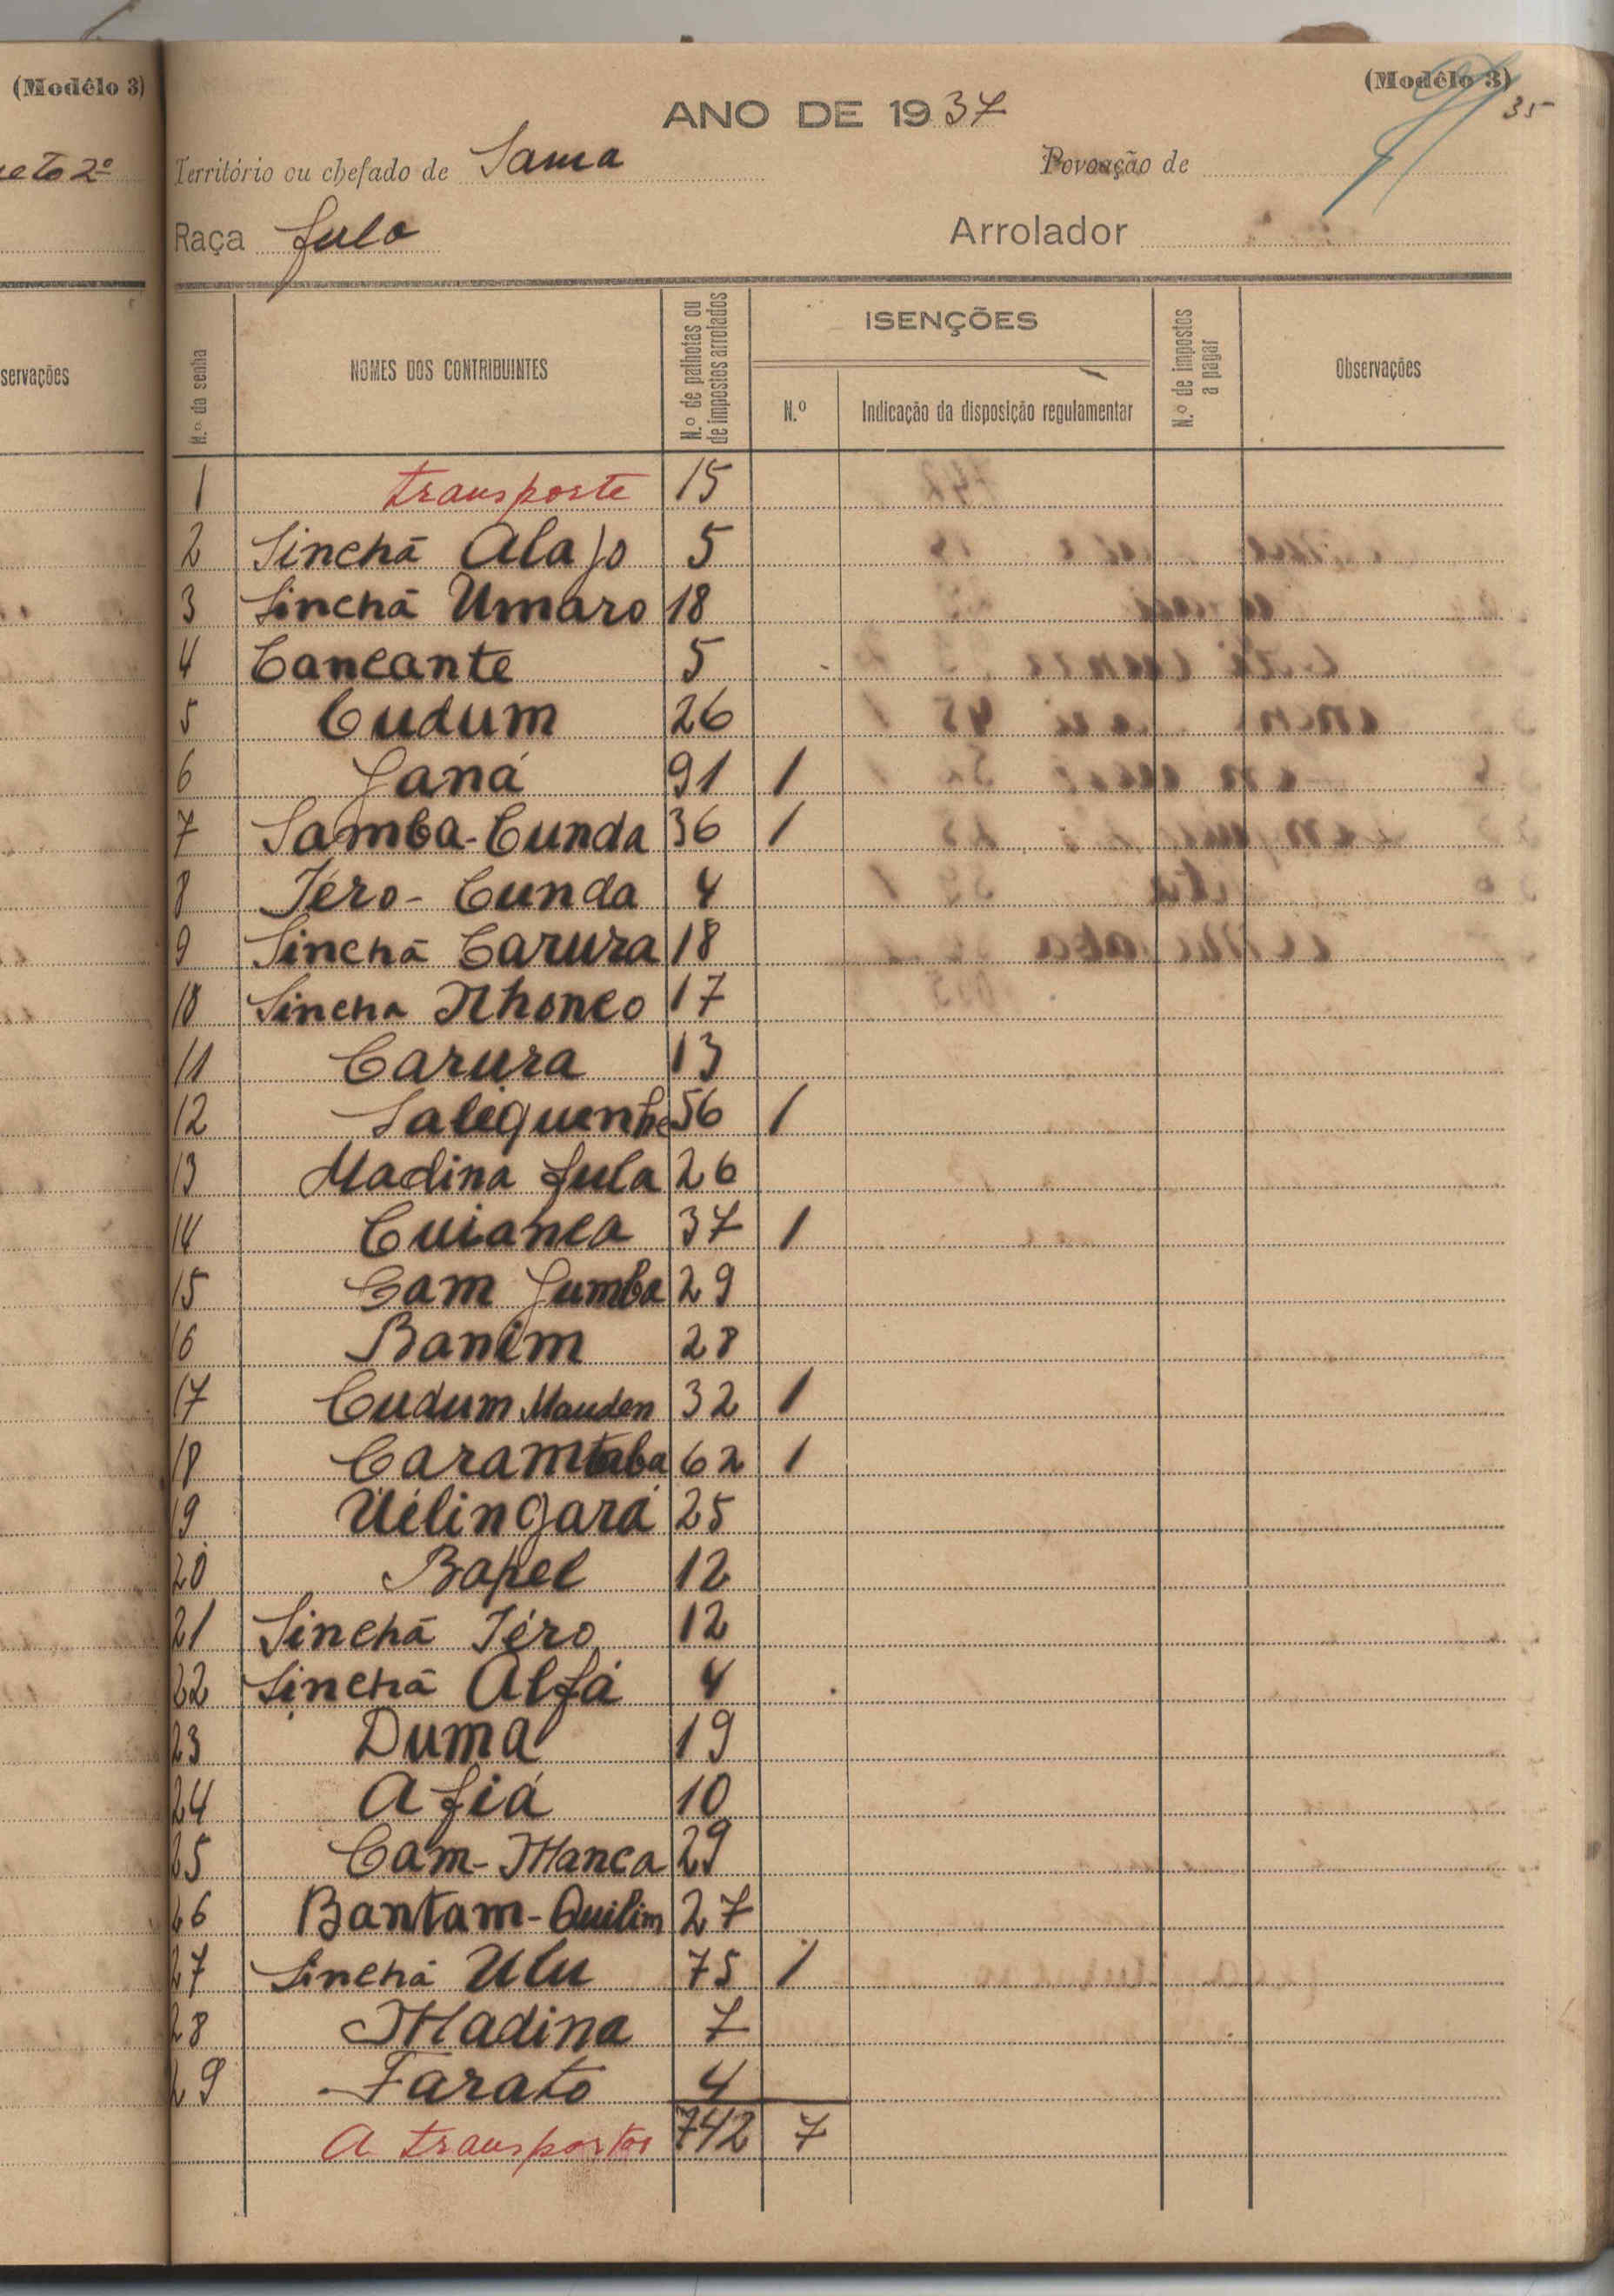 (Modêlo 3)
(Modêlo 3)
35
ANO DE 1937
eto 2º
Território ou chefado de Sama
Povoação de
Raça fulo
Arrolador
servações
N.º da senha
NOMES DOS CONTRIBUINTES
N.º de palhotas ou de impostos arrolados
ISENÇÕES
N.º
Indicação da disposição regulamentar
N.º de impostos a pagar
Observações
1 transporte 15
2 Sinchã Alajo 5
3 Sinchã Umaro 18
4 Cancante 5
5 Cudum 26
6 Janá 91 1
7 Samba-Cunda 36 1
8 Téro-Cunda 4
9 Sinchã Carura 18
10 Sincha Nhonco 17
11 Carura 13
12 Saliquenhe 56 1
13 Madina fula 26
14 Cuianca 37 1
15 Cam Jumba 29
16 Banim 28
17 Cudum Mauden 32 1
18 Caramtaba 62 1
19 Uélingará 25
20 Bapel 12
21 Sinchã Téro 12
22 Sinchã Alfá 4
23 Duma 19
24 Afiá 10
25 Cam-Manca 29
26 Bantam-Quilim 27
27 Sinchá Ulu 75 1
28 Madina 7
29 Farato 4
A transportar 742 7